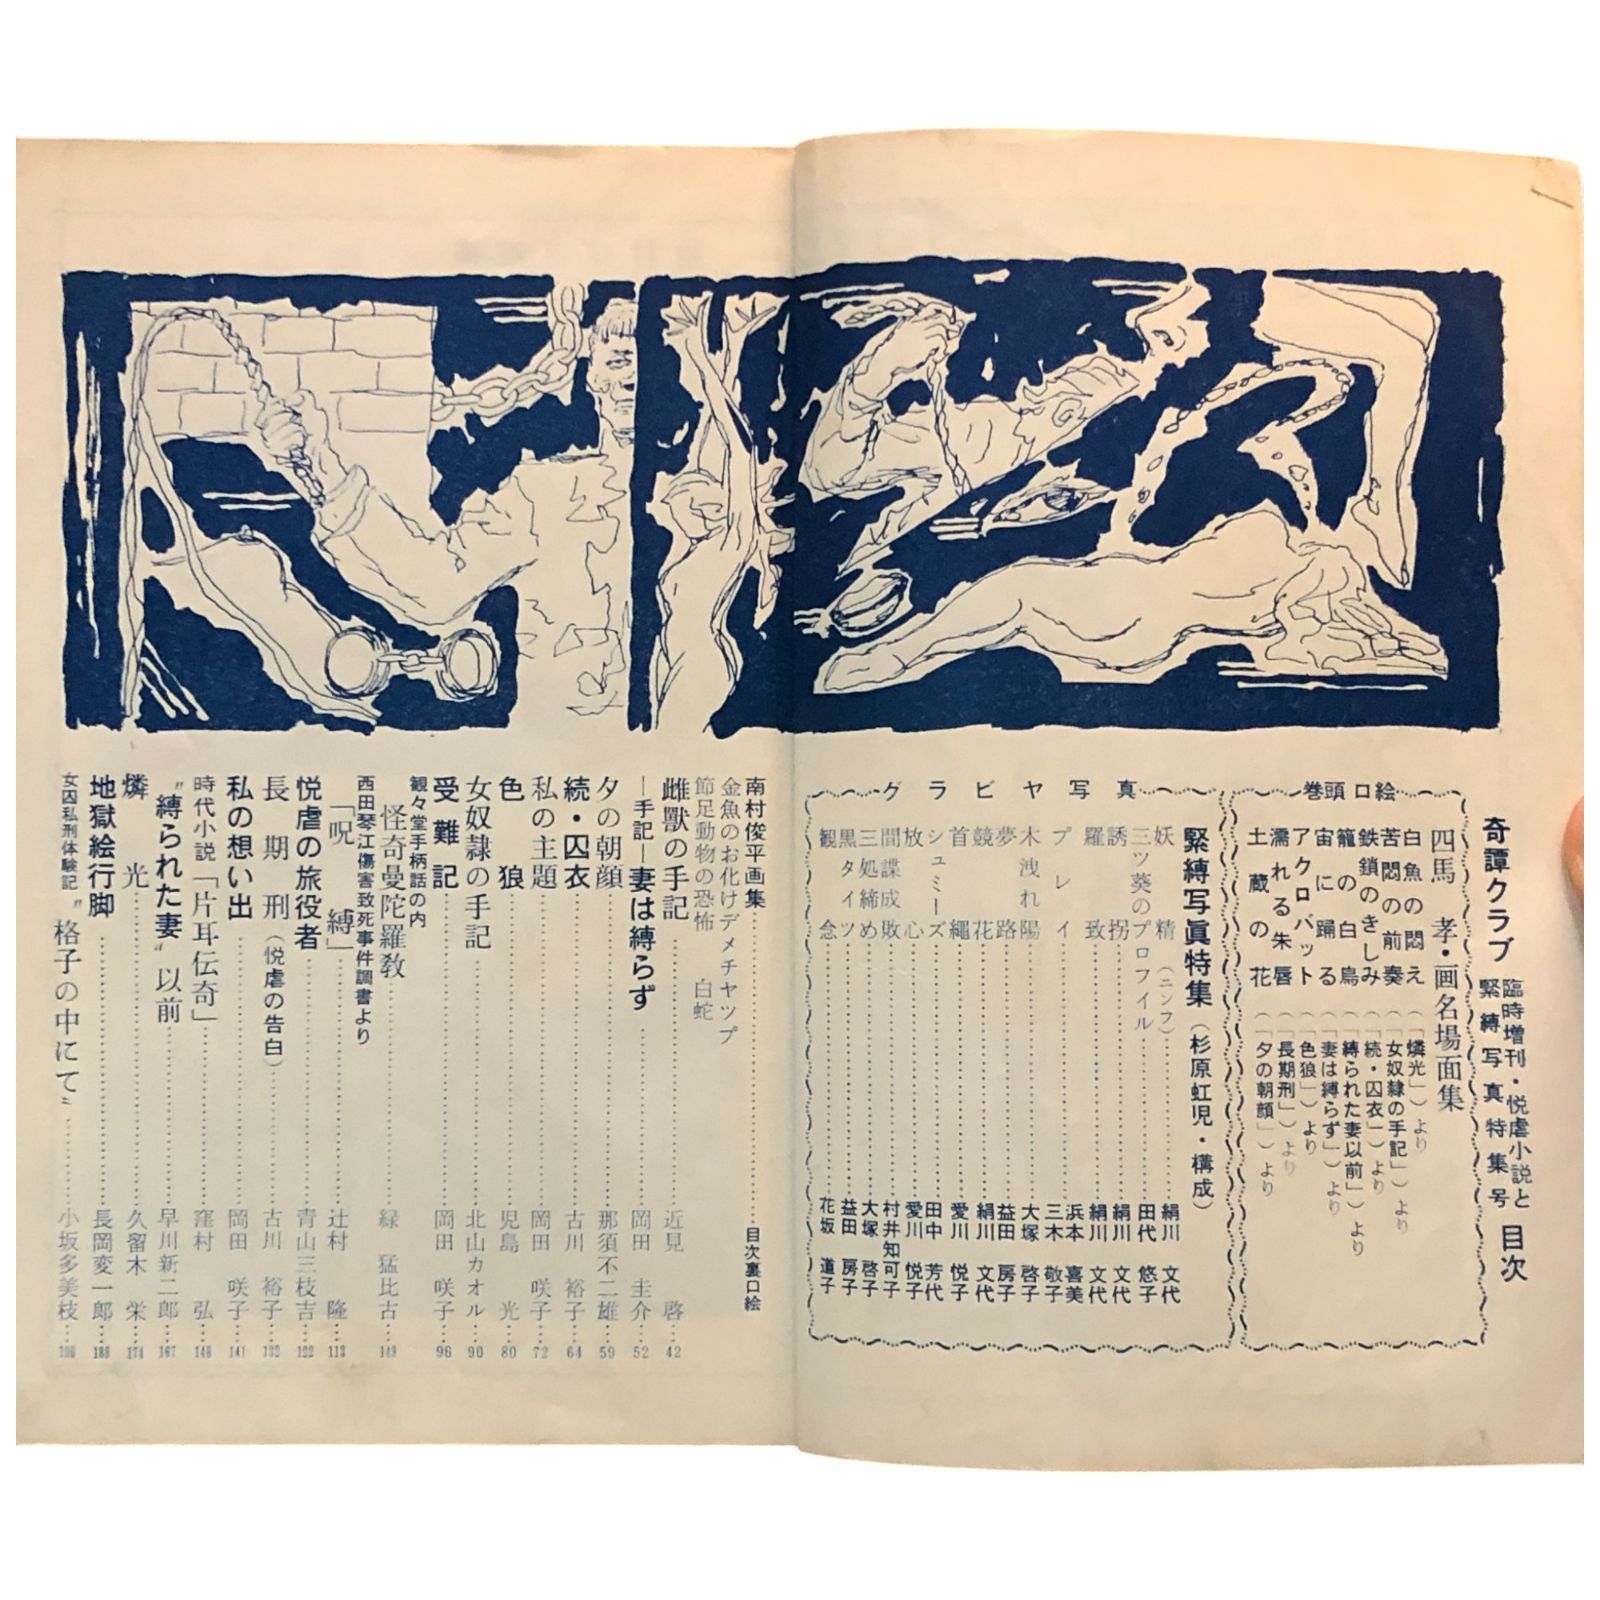 奇譚クラブ
臨時増刊・悦虐小説と
緊縛写真特集号
目次
巻頭口絵
四馬 孝・画名場面集
白魚の悶え(「燐光」)より
苦悶の前奏(「女奴隷の手記」)より
鉄鎖のきしみ(「続・囚衣」)より
籠の白鳥(「縛られた妻以前」)より
宙に踊る(「妻は縛らず」)より
アクロバット(「色狼」)より
濡れる朱唇(「長期刑」)より
土蔵の花(「夕の朝顔」)より
グラビヤ写真
緊縛写眞特集(杉原虹児・構成)
妖精(ニンフ)……絹川 文代
三ツ葵のプロフイル……田代 悠子
誘拐……絹川 文代
羅致……絹川 文代
プレイ……浜本 喜美
三木 敬子
木洩れ陽……大塚 啓子
夢路……益田 房子
競花……絹川 文代
首繩……愛川 悦子
シュミーズ……田中 芳代
放心……愛川 悦子
間諜成敗……村井知可子
三処締め……大塚 啓子
黒タイツ……益田 房子
観念……花坂 道子
南村俊平画集……目次裏口絵
金魚のお化けデメチヤツプ
節足動物の恐怖 白蛇
雌獣の手記……近見 啓…42
―手記―妻は縛らず……岡田 圭介…52
夕の朝顔……那須不二雄…59
続・囚衣……古川 裕子…64
私の主題……岡田 咲子…72
色狼……児島 光…80
女奴隷の手記……北山カオル…90
受難記……岡田 咲子…96
観々堂手柄話の内
怪奇曼陀羅教……緑 猛比古…149
西田琴江傷害致死事件調書より
「呪縛」……辻村 隆…113
悦虐の旅役者……青山三枝吉…122
長期刑(悦虐の告白)……古川 裕子…132
私の想い出……岡田 咲子…141
時代小説「片耳伝奇」……窪村 弘…146
“縛られた妻”以前……早川新二郎…167
燐光……久留木 栄…174
地獄絵行脚……長岡変一郎…188
女囚私刑体験記“格子の中にて”……小坂多美枝